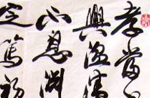 孝當
興溫凊
不息淵
定篤初